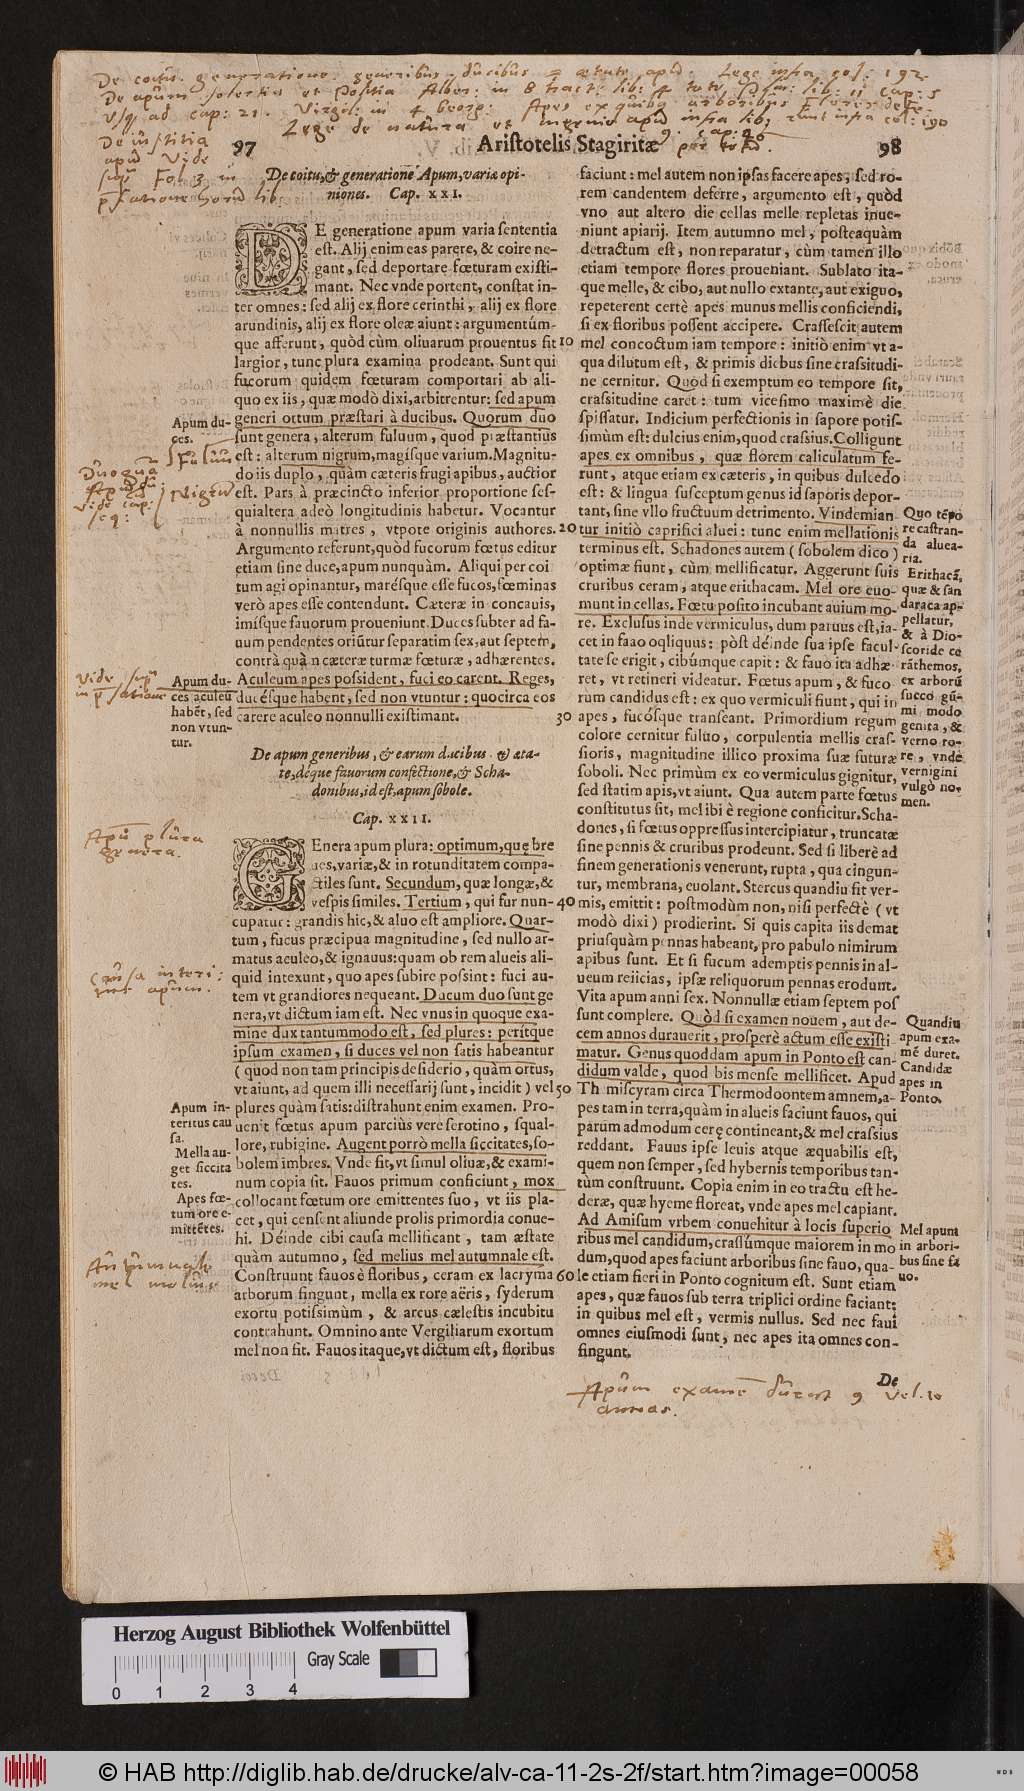 97
Aristotelis Stagiritæ
98
De coitu, & generatione Apum, variæ opi-
niones. Cap. XXI.
DE generatione apum varia sententia
est. Alij enim eas parere, & coire ne-
gant, sed deportare fœturam existi-
mant. Nec vnde portent, constat in-
ter omnes: sed alij ex flore cerinthi, alij ex flore
arundinis, alij ex flore oleæ aiunt: argumentúm-
que afferunt, quòd cùm oliuarum prouentus fit
largior, tunc plura examina prodeant. Sunt qui
fucorum quidem fœturam comportari ab ali-
quo ex iis, quæ modò dixi, arbitrentur: sed apum
generi ortum præstari à ducibus. Quorum duo
sunt genera, alterum fuluum, quod præstantius
est: alterum nigrum, magisque varium. Magnitu-
do iis duplo, quàm cæteris frugi apibus, auctior
est. Pars à præcincto inferior proportione ses-
quialtera adeò longitudinis habetur. Vocantur
à nonnullis matres, vtpote originis authores.
Argumento referunt, quòd fucorum fœtus editur
etiam sine duce, apum nunquàm. Aliqui per coi
tum agi opinantur, marésque esse fucos, fœminas
verò apes esse contendunt. Cæteræ in concauis,
imísque fauorum proueniunt. Duces subter ad fa-
uum pendentes oriũtur separatim sex, aut septem,
contrà quàm cæteræ turmæ fœturæ, adhærentes.
Aculeum apes possident, fuci eo carent. Reges,
ducésque habent, sed non vtuntur: quocirca eos
carere aculeo nonnulli existimant.
De apum generibus, & earum ducibus & æta-
te, déque fauorum confectione, & Scha-
donibus, id est, apum sobole.
Cap. XXII.
GEnera apum plura: optimum, quę bre
ues, variæ, & in rotunditatem compa-
ctiles sunt. Secundum, quæ longæ, &
vespis similes. Tertium, qui fur nun-
cupatur: grandis hic, & aluo est ampliore. Quar-
tum, fucus præcipua magnitudine, sed nullo ar-
matus aculeo, & ignauus: quam ob rem alueis ali-
quid intexunt, quo apes subire possint: fuci au-
tem vt grandiores nequeant. Ducum duo sunt ge
nera, vt dictum iam est. Nec vnus in quoque exa-
mine dux tantummodo est, sed plures: peritque
ipsum examen, si duces vel non satis habeantur
(quod non tam principis desiderio, quàm ortus,
vt aiunt, ad quem illi necessarij sunt, incidit) vel
plures quàm satis: distrahunt enim examen. Pro-
uenit fœtus apum parciùs vere serotino, squal-
lore, rubigine. Augent porrò mella siccitates, so-
bolem imbres. Vnde fit, vt simul oliuæ, & exami-
num copia sit. Fauos primum conficiunt, mox
collocant fœtum ore emittentes suo, vt iis pla-
cet, qui censent aliunde prolis primordia conue-
hi. Déinde cibi causa mellificant, tam æstate
quàm autumno, sed melius mel autumnale est.
Construunt fauos è floribus, ceram ex lacryma
arborum fingunt, mella ex rore aëris, syderum
exortu potissimùm, & arcus cælestis incubitu
contrahunt. Omnino ante Vergiliarum exortum
mel non fit. Fauos itaque, vt dictum est, floribus
Apum du-
ces.
Fuluũ
Nigrũ
Apum du-
ces aculeũ
habẽt, sed
non vtun-
tur.
Apũ plura
genera.
Causa interi-
tus apum.
Apum in-
teritus cau
sa.
Mella au-
get siccita
tes.
Apes fœ-
tum ore e-
mittẽtes.
faciunt: mel autem non ipsas facere apes, sed ro-
rem candentem deferre, argumento est, quòd
vno aut altero die cellas melle repletas inue-
niunt apiarij. Item autumno mel, posteaquàm
detractum est, non reparatur, cùm tamen illo
etiam tempore flores proueniant. Sublato ita-
que melle, & cibo, aut nullo extante, aut exiguo,
repeterent certè apes munus mellis conficiendi,
si ex floribus possent accipere. Crassescit autem
10 mel concoctum iam tempore: initiò enim vt a-
qua dilutum est, & primis diebus sine crassitudi-
ne cernitur. Quòd si exemptum eo tempore sit,
crassitudine caret: tum vicesimo maximè die
spissatur. Indicium perfectionis in sapore potis-
simùm est: dulcius enim, quod crassius. Colligunt
apes ex omnibus, quæ florem caliculatum fe-
runt, atque etiam ex cæteris, in quibus dulcedo
est: & lingua susceptum genus id saporis depor-
tant, sine vllo fructuum detrimento. Vindemian
20 tur initiò caprifici aluei: tunc enim mellationis
terminus est. Schadones autem (sobolem dico)
optimæ fiunt, cùm mellificatur. Aggerunt suis
cruribus ceram, atque erithacam. Mel ore euo-
munt in cellas. Fœtu posito incubant auium mo-
re. Exclusus inde vermiculus, dum paruus est, ia-
cet in fauo oqliquus: pòst déinde sua ipse facul-
tate se erigit, cibúmque capit: & fauo ita adhæ
ret, vt retineri videatur. Fœtus apum, & fuco
rum candidus est: ex quo vermiculi fiunt, qui in
30 apes, fucósque transeant. Primordium regum
colore cernitur fuluo, corpulentia mellis cras-
sioris, magnitudine illico proxima suæ futuræ
soboli. Nec primùm ex eo vermiculus gignitur,
sed statim apis, vt aiunt. Qua autem parte fœtus
constitutus sit, mel ibi è regione conficitur. Scha-
dones, si fœtus oppressus intercipiatur, truncatæ
sine pennis & cruribus prodeunt. Sed si liberè ad
finem generationis venerunt, rupta, qua cingun-
tur, membrana, euolant. Stercus quandiu fit ver-
40 mis, emittit: postmodùm non, nisi perfectè (vt
modò dixi) prodierint. Si quis capita iis demat
priusquàm pennas habeant, pro pabulo nimirum
apibus sunt. Et si fucum ademptis pennis in al-
ueum reiicias, ipsæ reliquorum pennas erodunt.
Vita apum anni sex. Nonnullæ etiam septem pos
sunt complere. Quòd si examen nouem, aut de-
cem annos durauerit, prosperè actum esse existi-
matur. Genus quoddam apum in Ponto est can-
didum valde, quod bis mense mellificet. Apud
50 Themiscyram circa Thermodoontem amnem, a-
pes tam in terra, quàm in alueis faciunt fauos, qui
parùm admodum cerę contineant, & mel crassius
reddant. Fauus ipse leuis atque æquabilis est,
quem non semper, sed hybernis temporibus tan-
tùm construunt. Copia enim in eo tractu est he-
deræ, quæ hyeme floreat, vnde apes mel capiant.
Ad Amisum vrbem conuehitur à locis superio
ribus mel candidum, crassúmque maiorem in mo
dum, quod apes faciunt arboribus sine fauo, qua-
60 le etiam fieri in Ponto cognitum est. Sunt etiam
apes, quæ fauos sub terra triplici ordine faciant:
in quibus mel est, vermis nullus. Sed nec faui
omnes eiusmodi sunt, nec apes ita omnes con-
fingunt.
De
Quo tẽpo
re castran-
da aluea-
ria.
Erithacã,
quæ & san
daraca ap-
pellatur,
& à Dio-
scoride ce
rãthemos,
ex arborũ
succo gũ-
mi modo
genita, &
verno ro-
re, vnde
vernigini
vulgò no-
men.
Quandiu
apum exa-
mẽ duret.
Candidæ
apes in
Ponto.
Mel apum
in arbori-
bus sine fa
uo.
Apum examẽ durat 9 vel. 10
annos.
Herzog August Bibliothek Wolfenbüttel
Gray Scale
0 1 2 3 4
© HAB http://diglib.hab.de/drucke/alv-ca-11-2s-2f/start.htm?image=00058